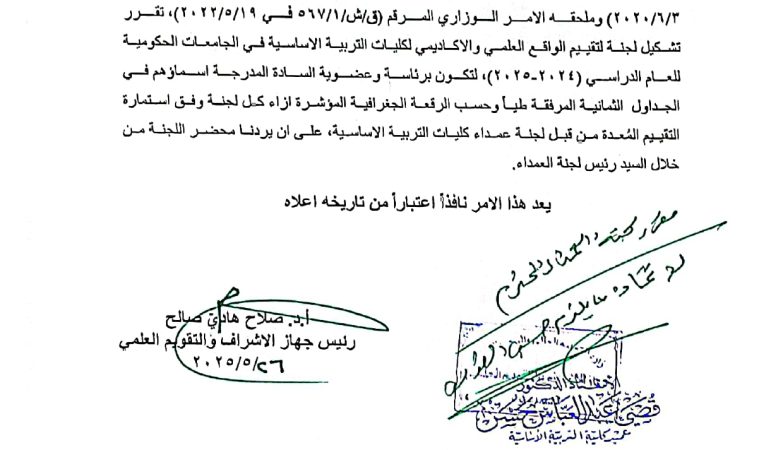 ٢٠٢٠/٦/٣) وملحقه الامر الوزاري المرقم (ق/ش/٥٦٧/١ في ٢٠٢٢/٥/١٩)، تقرر
تشكيل لجنة لتقييم الواقع العلمي والاكاديمي لكليات التربية الاساسية في الجامعات الحكومية
للعام الدراسي (٢٠٢٤-٢٠٢٥)، لتكون برئاسة وعضوية السادة المدرجة اسماؤهم في
الجداول الثمانية المرفقة طياً وحسب الرقعة الجغرافية المؤشرة ازاء كل لجنة وفق استمارة
التقييم المُعدة من قبل لجنة عمداء كليات التربية الاساسية، على ان يردنا محضر اللجنة من
خلال السيد رئيس لجنة العمداء.
يعد هذا الامر نافذاً اعتباراً من تاريخه اعلاه
أ.د. صلاح هادي صالح
رئيس جهاز الاشراف والتقويم العلمي
٢٠٢٥/٥/٢٦
الأستاذ الدكتور
عبد العباس حسن
عميد كلية التربية الأساسية